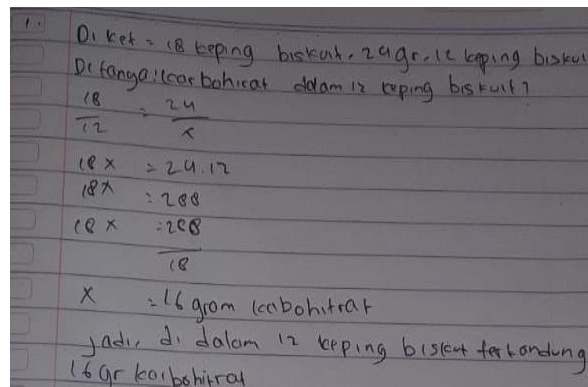 1.
Di ket = 18 keping biskuit. 24gr. 12 keping bisku
Ditanya: karbohirat dalam 12 keping biskuit?
18/12 = 24/x
18x = 24.12
18x = 288
18x = 288/18
x = 16 gram kabohitrat
Jadi, di dalam 12 keping biskut terkandung
16 gr karbohitrat